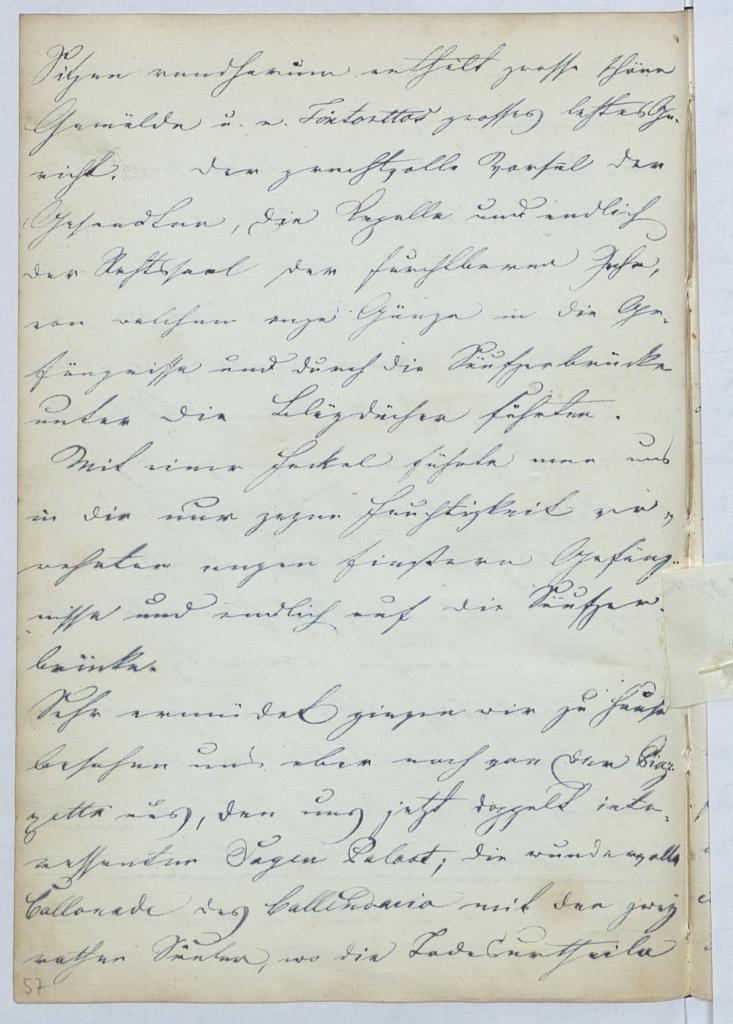 Sitzen rundherum enthält grosse schöne
Gemälde u. a. Tintorettos grosses letztes Ge-
richt. Der prachtvolle Vorsaal der
Gesandten, die Kapelle und endlich
der Rathssaal der furchtbaren Zehn,
von welchem enge Gänge in die Ge-
fängnisse und durch die Seufzerbrücke
unter die Bleydächer führten.
Mit einer Fackel führte man uns
in die nur gegen Feuchtigkeit ver-
wahrten engen finstern Gefäng-
nisse und endlich auf die Seufzer-
brücke.
Sehr ermüdet giengen wir zu Hause
besahen uns aber noch von der Piaz-
zetta aus, den uns jetzt doppelt inte-
ressanten Dogen Palast; die wundervolle
Collonade des mit den zwey
rothen Säulen, wo die Todesurtheile
57